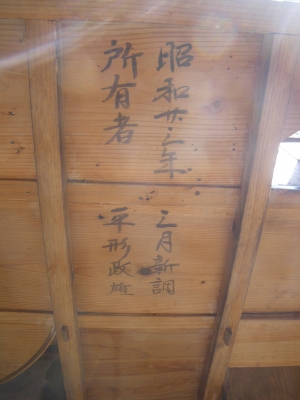 昭和廿三年
三月新調
所有者
平形政雄